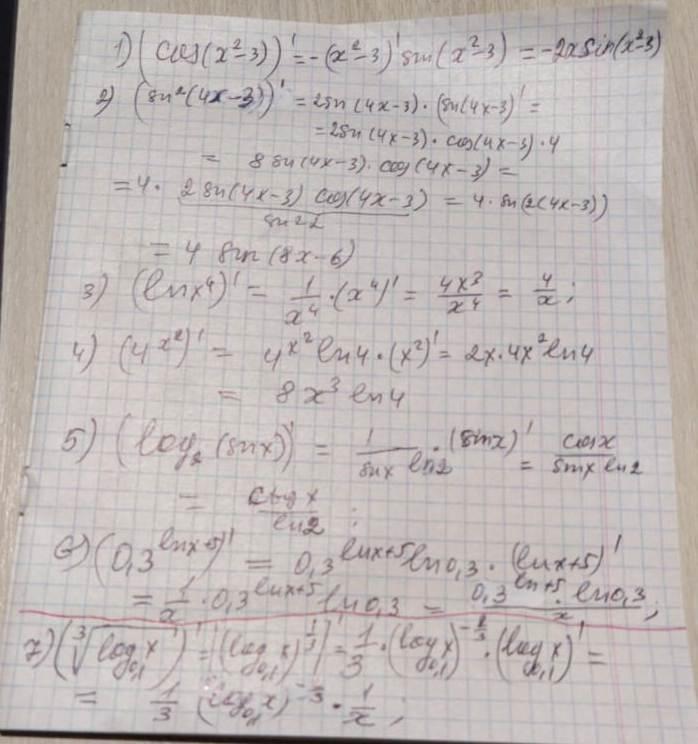 1) (cos(x²-3))' = -(x²-3)' sin(x²-3) = -2x sin(x²-3)
2) (sin²(4x-3))' = 2sin(4x-3)·(sin(4x-3)' =
= 2sin(4x-3)·cos(4x-3)·4
= 8 sin(4x-3)·cos(4x-3) =
= 4· 2 sin(4x-3) cos(4x-3) = 4·sin(2(4x-3))
sin2α
= 4 sin(8x-6)
3) (ln x⁴)' = 1/x⁴·(x⁴)' = 4x³/x⁴ = 4/x;
4) (4^x²)' = 4^x² ln4·(x²)' = 2x·4x² ln4
= 8x³ ln4
5) (log₂(sinx))' = 1/(sinx ln2)·(sinx)' = cosx/(sinx ln2)
= ctgx/ln2;
6) (0,3^(lnx+5))' = 0,3^(lnx+5) ln0,3·(lnx+5)'
= 1/x·0,3^(lnx+5) ln0,3 = 0,3^(ln+5)·ln0,3/x;
7) (³√(log₀,₁x))' = ((log₀,₁x)^(1/3))' = 1/3·(log₀,₁x)^(-2/3)·(log₀,₁x)' =
= 1/3 (log₀,₁x)^(-3)·1/x;